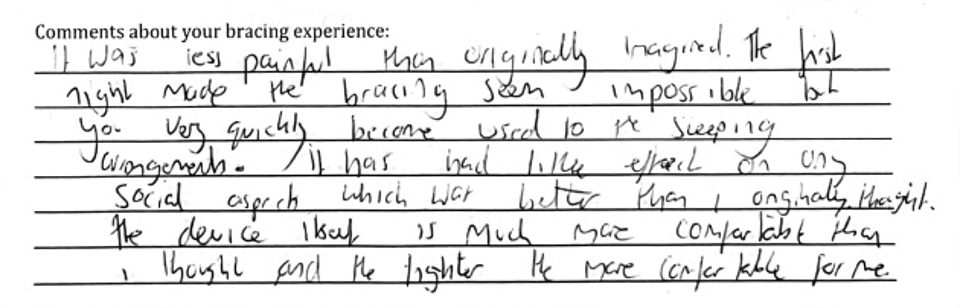 Comments about your bracing experience:
It was less painful than originally imagined. The first
night made the bracing seem impossible but
you very quickly become used to the sleeping
arrangements. It has had little effect on any
social aspects which was better than i originally thought.
The device itself is much more comfortable than
i thought and the tighter the more comfortable for me.